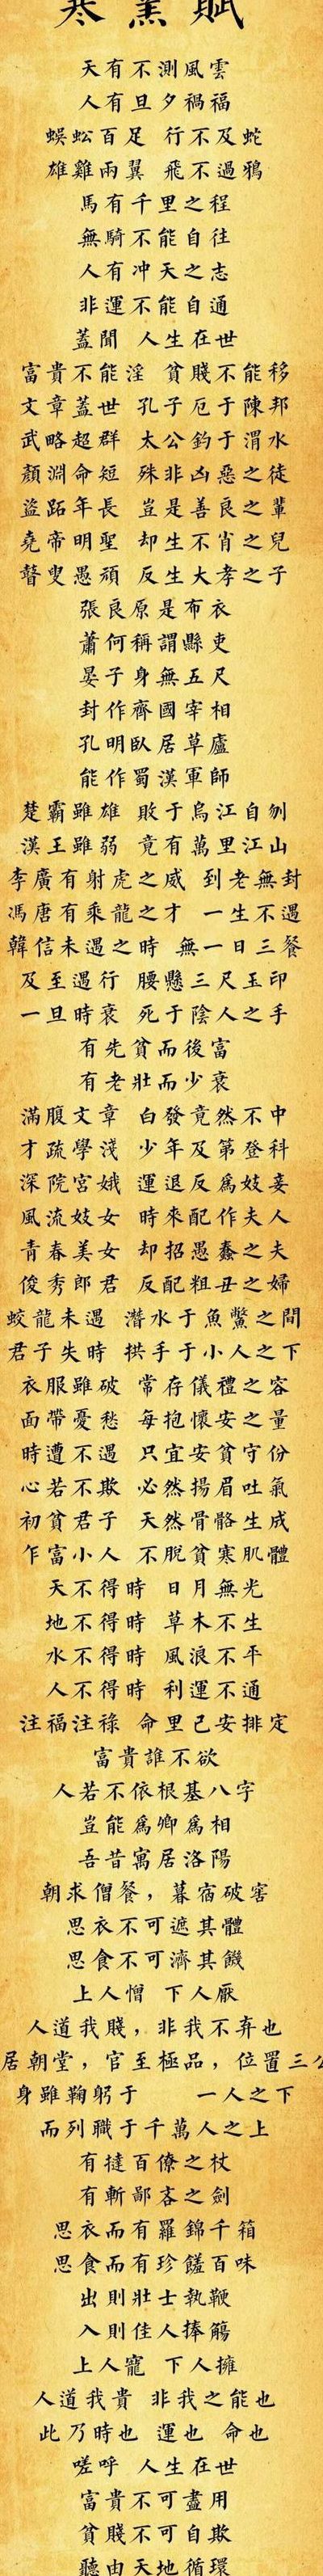 寒窯賦
天有不測風雲
人有旦夕禍福
蜈蚣百足 行不及蛇
雄雞兩翼 飛不過鴉
馬有千里之程
無騎不能自往
人有冲天之志
非運不能自通
蓋聞 人生在世
富貴不能淫 貧賤不能移
文章蓋世 孔子厄于陳邦
武略超群 太公釣于渭水
顏淵命短 殊非凶惡之徒
盜跖年長 豈是善良之輩
堯帝明聖 却生不肖之兒
瞽叟愚頑 反生大孝之子
張良原是布衣
蕭何稱謂縣吏
晏子身無五尺
封作齊國宰相
孔明臥居草廬
能作蜀漢軍師
楚霸雖雄 敗于烏江自刎
漢王雖弱 竟有萬里江山
李廣有射虎之威 到老無封
馮唐有乘龍之才 一生不遇
韓信未遇之時 無一日三餐
及至遇行 腰懸三尺玉印
一旦時衰 死于陰人之手
有先貧而後富
有老壯而少衰
滿腹文章 白發竟然不中
才疏學淺 少年及第登科
深院宮娥 運退反爲妓妾
風流妓女 時來配作夫人
青春美女 却招愚蠢之夫
俊秀郎君 反配粗丑之婦
蛟龍未遇 潛水于魚鱉之間
君子失時 拱手于小人之下
衣服雖破 常存儀禮之容
面帶憂愁 每抱懷安之量
時遭不遇 只宜安貧守份
心若不欺 必然揚眉吐氣
初貧君子 天然骨骼生成
乍富小人 不脫貧寒肌體
天不得時 日月無光
地不得時 草木不生
水不得時 風浪不平
人不得時 利運不通
注福注祿 命里已安排定
富貴誰不欲
人若不依根基八字
豈能爲卿爲相
吾昔寓居洛陽
朝求僧餐，暮宿破窖
思衣不可遮其體
思食不可濟其饑
上人憎 下人厭
人道我賤，非我不弃也
居朝堂，官至極品，位置三公
身雖鞠躬于 一人之下
而列職于千萬人之上
有撻百僚之杖
有斬鄙吝之劍
思衣而有羅錦千箱
思食而有珍饈百味
出則壯士執鞭
入則佳人捧觴
上人寵 下人擁
人道我貴 非我之能也
此乃時也 運也 命也
嗟呼 人生在世
富貴不可盡用
貧賤不可自欺
聽由天地循環